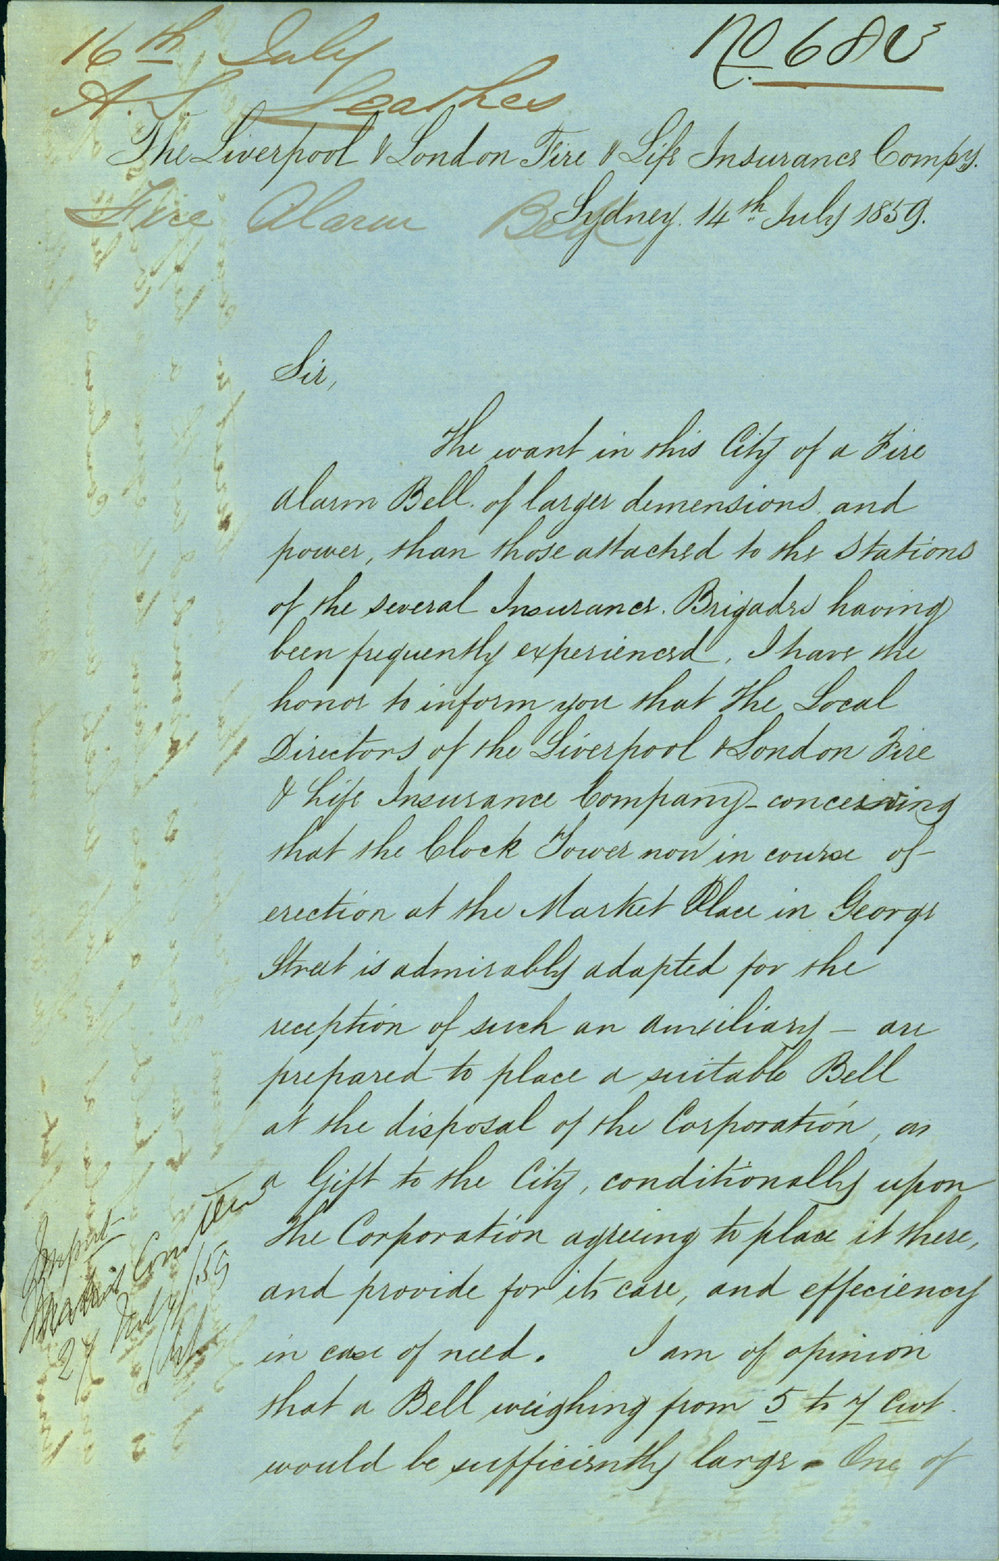 16th July
No 682
A. S. Leathes
The Liverpool & London Fire & Life Insurance Compy.
Fire Alarm Bell
Sydney. 14th July 1859.
Sir,
The want in this City of a Fire
alarm Bell of larger demensions and
power, than those attached to the stations
of the several Insurance Brigades having
been frequently experienced, I have the
honor to inform you that the Local
Directors of the Liverpool & London Fire
& Life Insurance Company - conceiving
that the Clock Tower now in course of
erection at the Market Place in George
Street is admirably adapted for the
reception of such an auxiliary - are
prepared to place a suitable Bell
at the disposal of the Corporation, as
a Gift to the City, conditionally upon
the Corporation agreeing to place it there,
and provide for its care, and effeciency
in case of need. I am of opinion
that a Bell weighing from 5 to 7 Cwt.
would be sufficiently large - One of
Market Committee
27 July/59